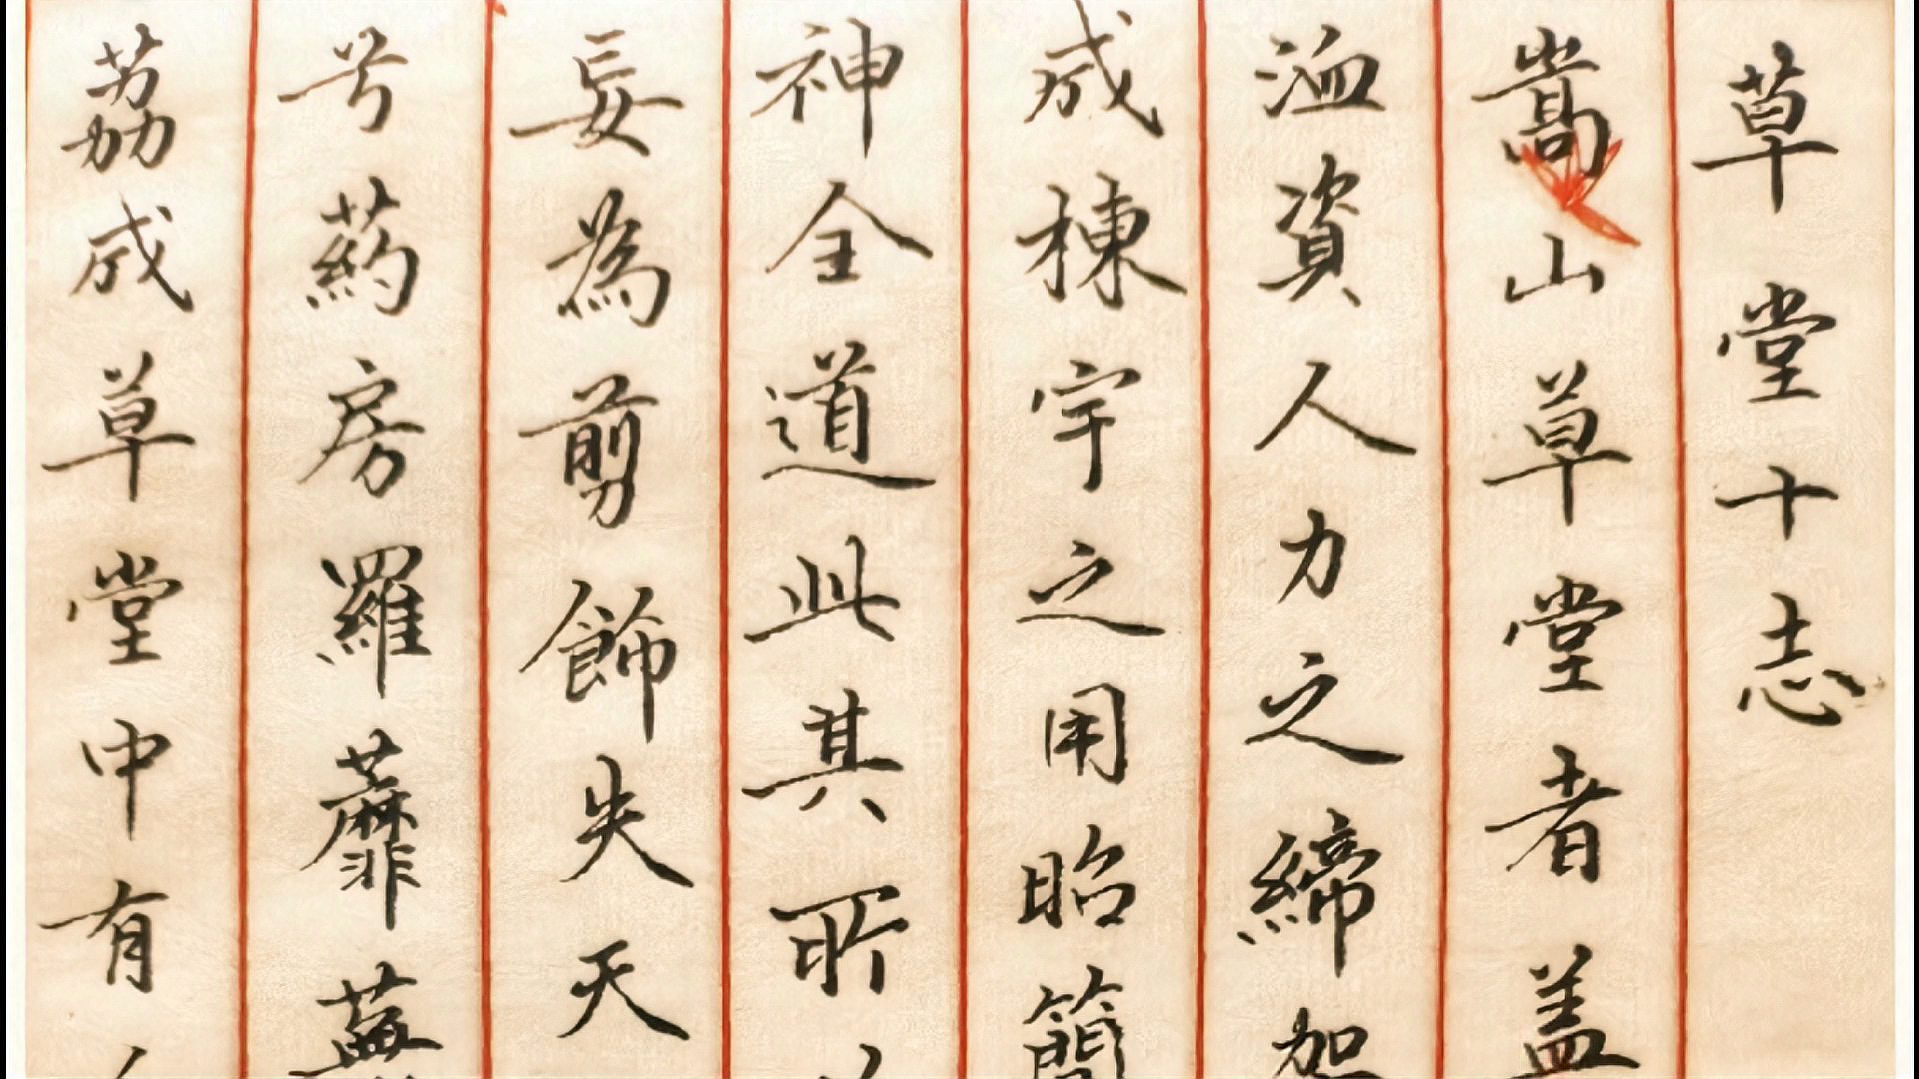 草堂十志
嵩山草堂者盖
洫資人力之締架
成棟宇之用昭簡
神全道此其所
妄為剪飾失天
兮葯房羅蘼蕪
荔成草堂中有